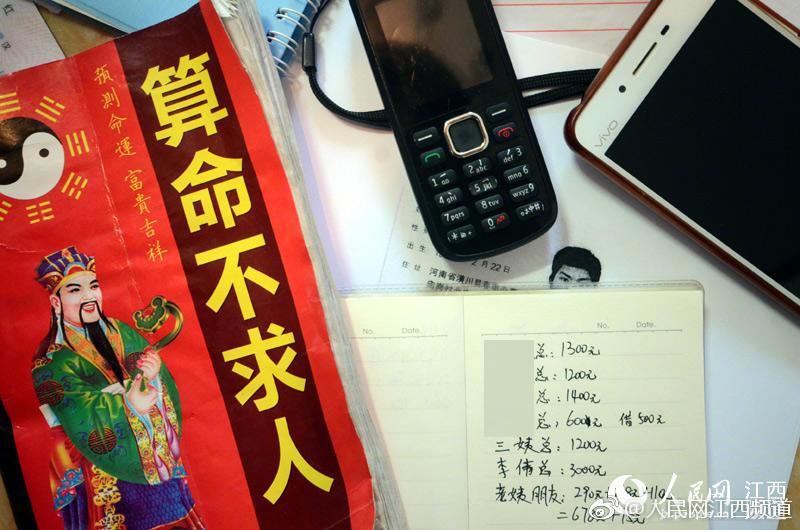 算命不求人
預測命運 富貴吉祥
vivo
1
2abc
3def
4ghi
5jkl
6mno
7pqrs
8tuv
9wxyz
0
出生
2月22日
住址 河南省潢川县
No. Date.
No. Date.
总：1300元
总：1200元
总：1400元
总，600元 借500元
三姨总：1200元
李伟总：3000元
老姨朋友：290元
人民网 江西
@人民网江西频道